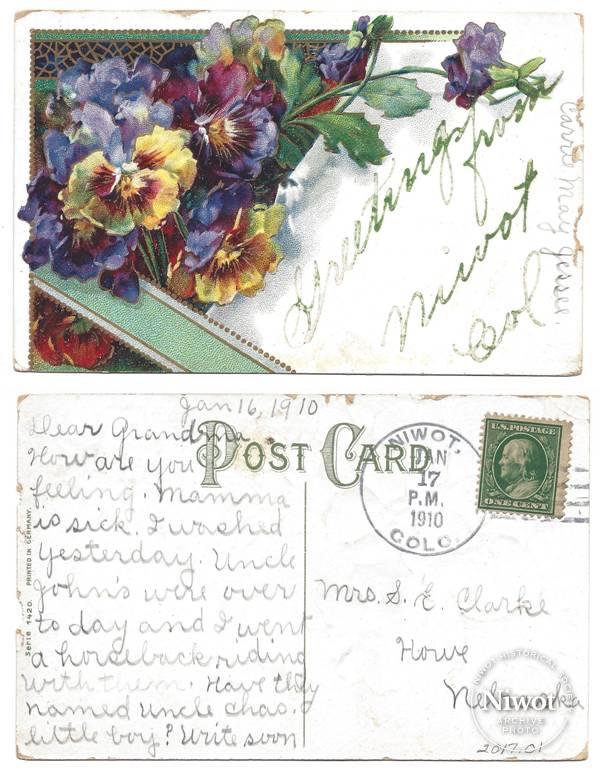 Greetings from
Niwot
Col
Carrie May
Jan 16, 1910
Dear Grandma
How are you
feeling. Mamma
is sick. I washed
yesterday. Uncle
John's were over
today and I went
a horseback riding
with them. Have they
named Uncle Chas.
little boy? Write soon
POST CARD
NIWOT,
JAN
17
P.M.
1910
COLO.
U.S. POSTAGE
ONE CENT
Mrs. S. E. Clarke
Howe
Nebraska
Serie 1420. PRINTED IN GERMANY.
NIWOT HISTORICAL SOCIETY
Niwot
ARCHIVE
PHOTO
2017.01